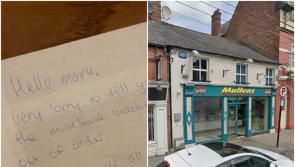 Hello mark,
very sorry to tell y
the milkshake machin
out of order
all
Mullens